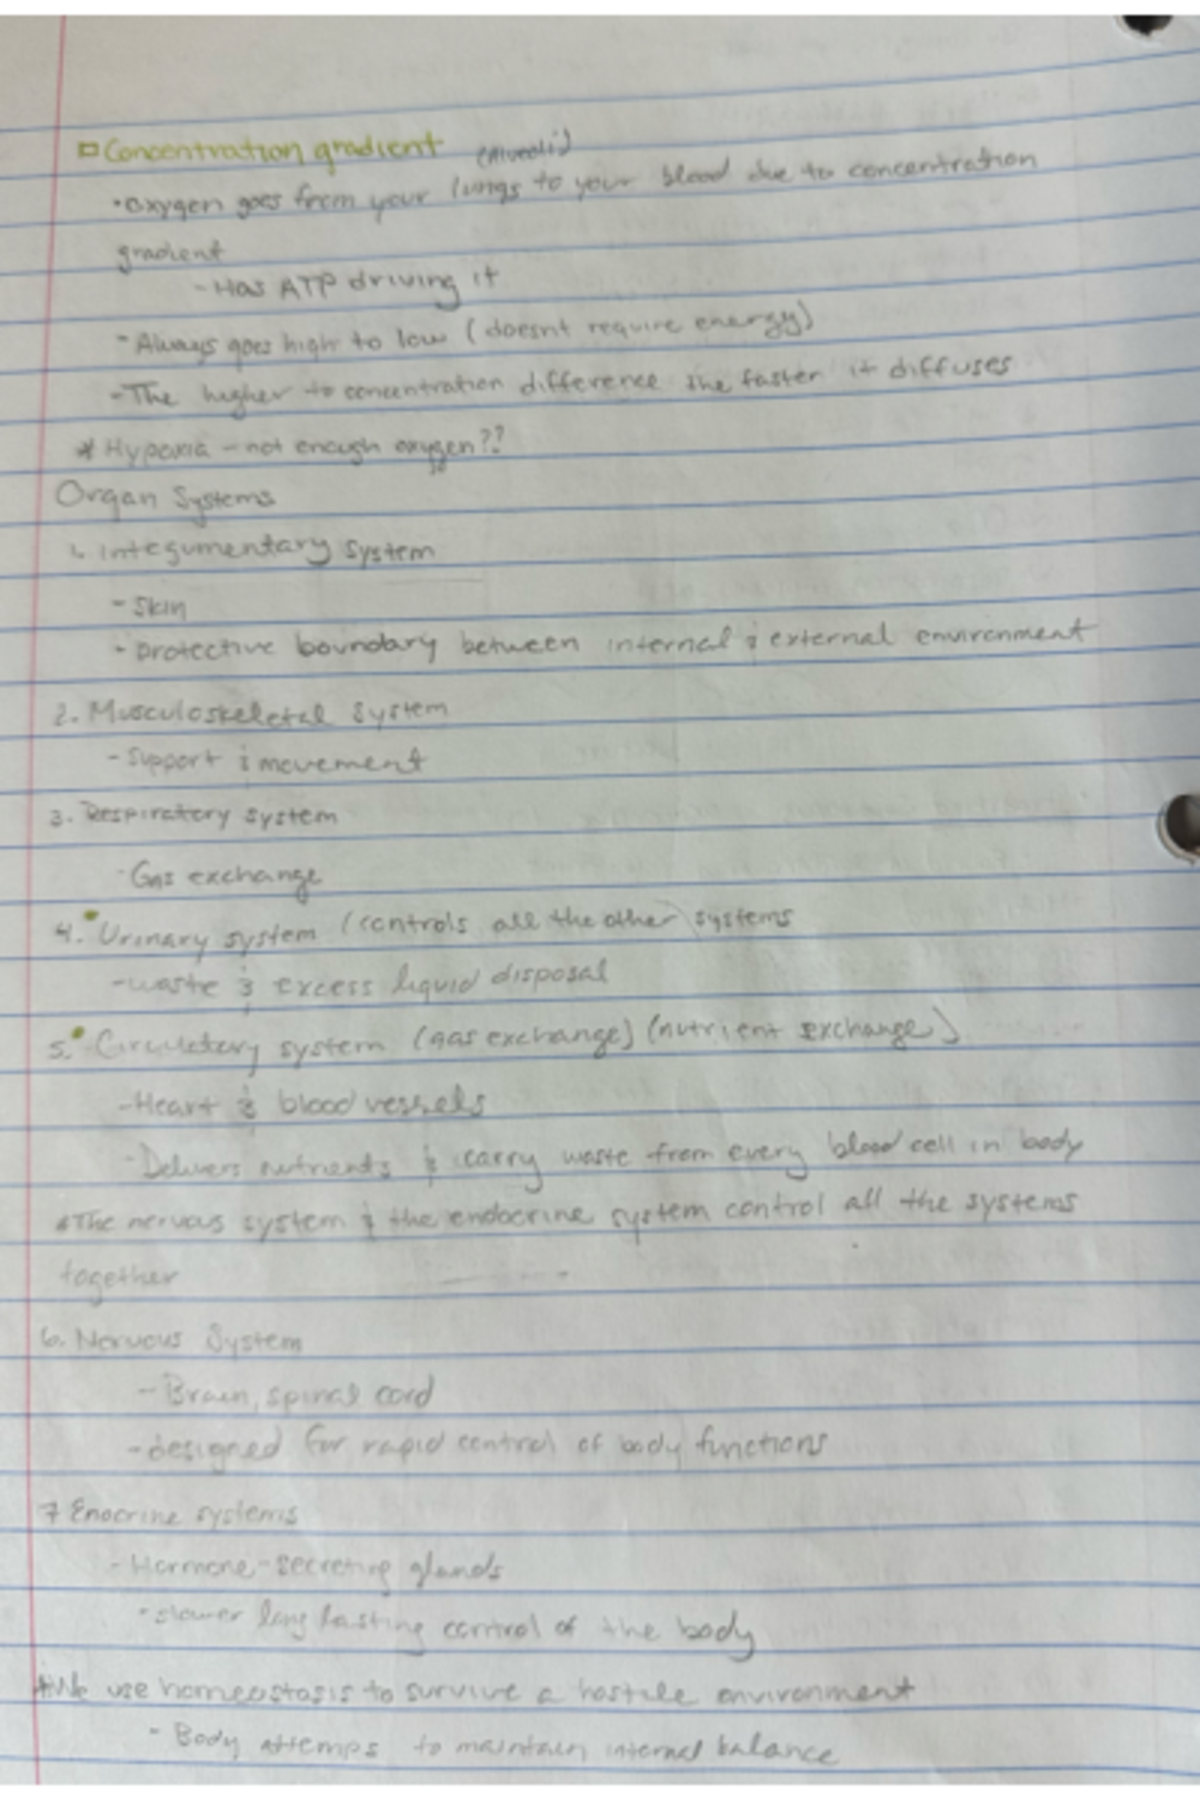 Concentration gradient (Alveoli)
• oxygen goes from your lungs to your blood due to concentration
gradient
- Has ATP driving it
- Always goes high to low (doesnt require energy)
- The higher to concentration difference the faster it diffuses
* Hypoxia - not enough oxygen??
Organ Systems
1. Integumentary system
- Skin
- protective boundary between internal & external environment
2. Musculoskeletal system
- Support & movement
3. Respiratory system
- Gas exchange
4. Urinary system (controls all the other systems
- waste & excess liquid disposal
5. Circulatory system (gas exchange) (nutrient exchange)
- Heart & blood vessels
- Delivers nutrients & carry waste from every blood cell in body
* The nervous system & the endocrine system control all the systems
together
6. Nervous System
- Brain, spinal cord
- designed for rapid control of body functions
7 Enocrine systems
- Hormone-secreting glands
- slower long lasting control of the body
* We use homeostasis to survive a hostile environment
- Body attemps to maintain internal balance